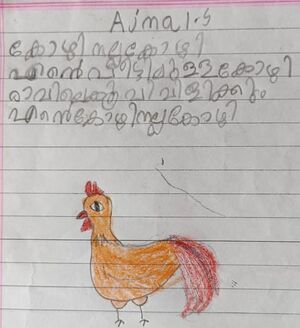 Ajmal.s
കോഴി നല്ലകോഴി
എന്റെ വീട്ടിലുള്ള കോഴി
രാവിലെ കൂവി വിളിക്കും
എന്റെകോഴിനല്ലകോഴി